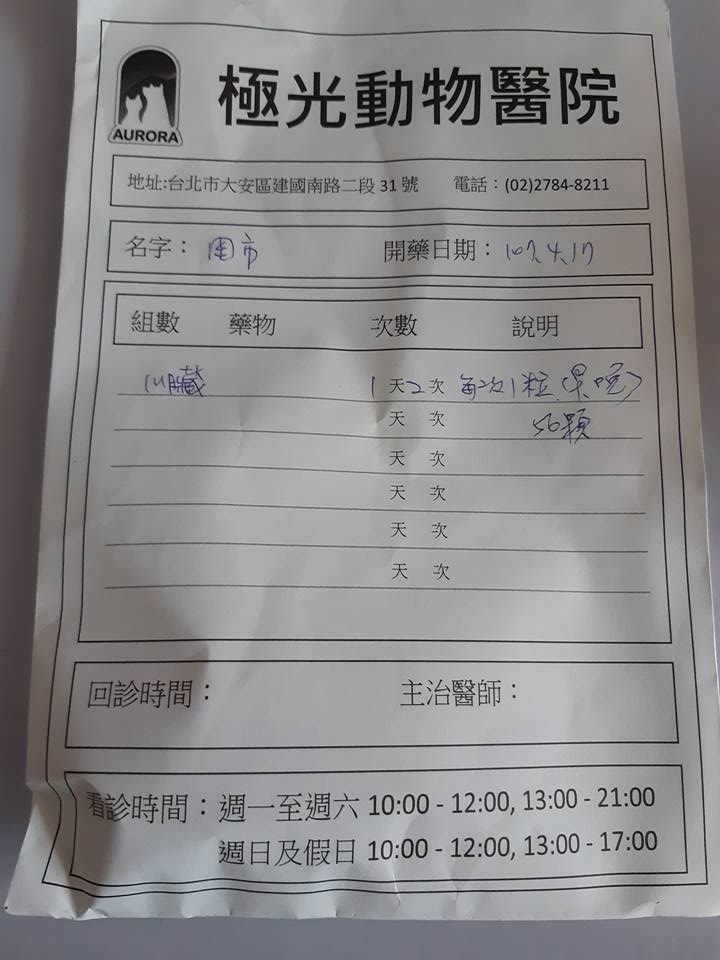 AURORA
極光動物醫院
地址:台北市大安區建國南路二段 31 號 電話：(02)2784-8211
名字： 開藥日期：107.4.17
組數 藥物 次數 說明
心臟 1 天 2 次 每次1粒(早晚)
天 次 56顆
天 次
天 次
天 次
天 次
回診時間： 主治醫師：
看診時間：週一至週六 10:00 - 12:00, 13:00 - 21:00
週日及假日 10:00 - 12:00, 13:00 - 17:00